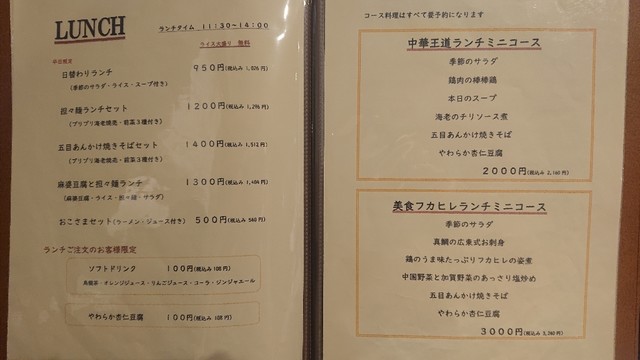 LUNCH
ランチタイム 11:30~14:00
ライス大盛り 無料
日替わりランチ 950円(税込み 1,026円)
(季節のサラダ・ライス・スープ付き)
担々麺ランチセット 1200円(税込み 1,296円)
(プリプリ海老焼売・前菜3種付き)
五目あんかけ焼きそばセット 1400円(税込み 1,512円)
(プリプリ海老焼売・前菜3種付き)
麻婆豆腐と担々麺ランチ 1300円(税込み 1,404円)
(麻婆豆腐・ライス・担々麺・サラダ)
おこさまセット(ラーメン・ジュース付き) 500円(税込み 540円)
ランチご注文のお客様限定
ソフトドリンク 100円(税込み 108円)
烏龍茶・オレンジジュース・りんごジュース・コーラ・ジンジャエール
やわらか杏仁豆腐 100円(税込み 108円)
コース料理はすべて要予約になります
中華王道ランチミニコース
季節のサラダ
鶏肉の棒棒鶏
本日のスープ
海老のチリソース煮
五目あんかけ焼きそば
やわらか杏仁豆腐
2000円(税込み 2,160円)
美食フカヒレランチミニコース
季節のサラダ
真鯛の広東式お刺身
鶏のうま味たっぷりフカヒレの姿煮
中国野菜と加賀野菜のあっさり塩炒め
五目あんかけ焼きそば
やわらか杏仁豆腐
3000円(税込み 3,240円)